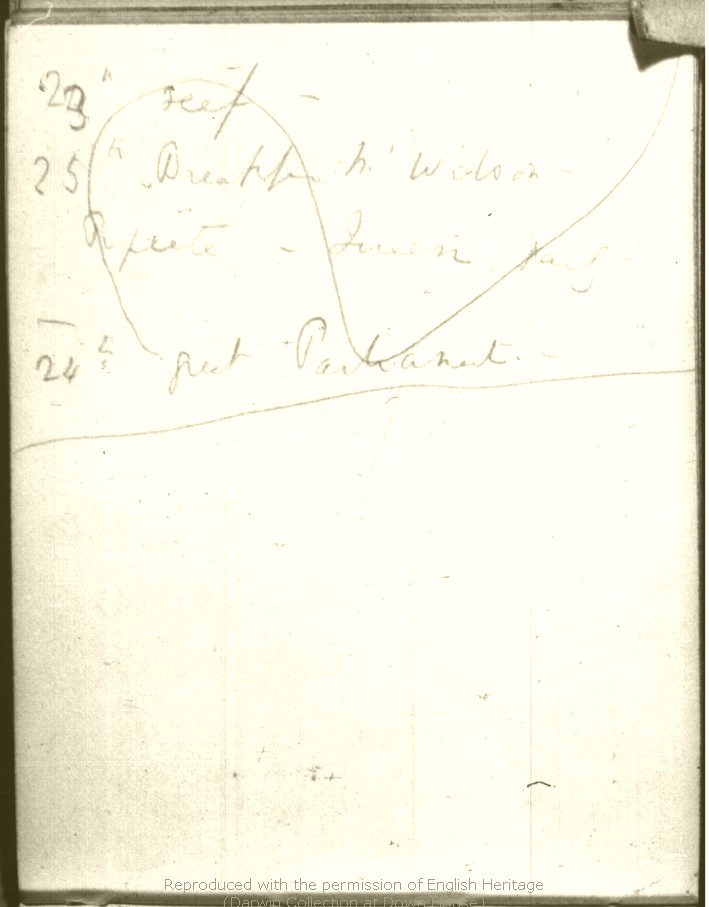 23th reef —
25th Breakfast Mr Wilson —
Papiete — Queen
24th great Parliament. —
Reproduced with the permission of English Heritage
(Darwin Collection at Down House)